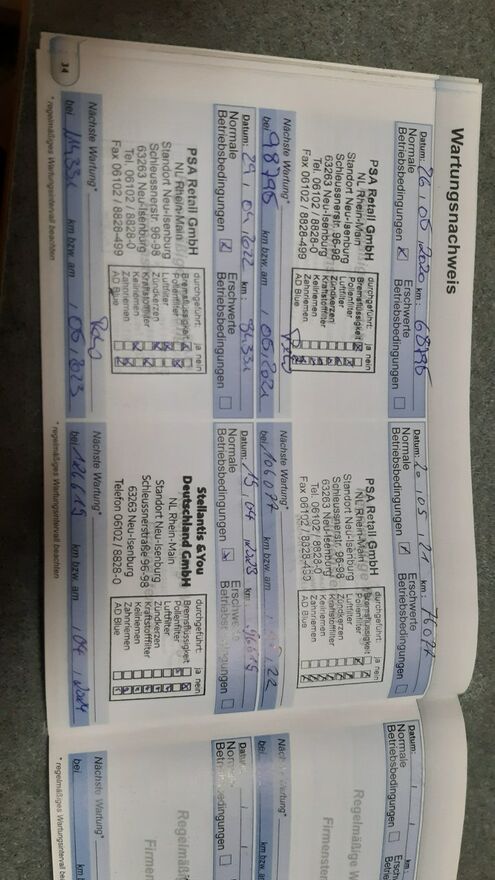 Wartungsnachweis
Datum: 26, 05, 2020 km: 68795
Normale Betriebsbedingungen ☒ Erschwerte Betriebsbedingungen ☐
PSA Retail GmbH
NL Rhein-Main
Standort Neu-Isenburg
Schleussnerstr. 96-98
63263 Neu-Isenburg
Tel. 06102 / 8828-0
Fax 06102 / 8828-499
durchgeführt: ja nein
Bremsflüssigkeit
Pollenfilter
Luftfilter
Zündkerzen
Kraftstofffilter
Keilriemen
Zahnriemen
AD Blue
Nächste Wartung*
bei 98795 km bzw. am , 05, 2021
Datum: 20, 05, 21 km: 76077
Normale Betriebsbedingungen Erschwerte Betriebsbedingungen ☐
PSA Retail GmbH
NL Rhein-Main
Standort Neu-Isenburg
Schleussnerstr. 96-98
63263 Neu-Isenburg
Tel. 06102 / 8828-0
Fax 06102 / 8828-499
durchgeführt: ja nein
Bremsflüssigkeit
Pollenfilter
Luftfilter
Zündkerzen
Kraftstofffilter
Keilriemen
Zahnriemen
AD Blue
Nächste Wartung*
bei 106077 km bzw. am 22
Datum: 29, 04, 2022 km:
Normale Betriebsbedingungen ☒ Erschwerte Betriebsbedingungen ☐
PSA Retail GmbH
NL Rhein-Main
Standort Neu-Isenburg
Schleussnerstr. 96-98
63263 Neu-Isenburg
Tel. 06102 / 8828-0
Fax 06102 / 8828-499
durchgeführt: ja nein
Bremsflüssigkeit
Pollenfilter
Luftfilter
Zündkerzen
Kraftstofffilter
Keilriemen
Zahnriemen
AD Blue
Nächste Wartung*
bei km bzw. am , 05, 2023
* regelmäßiges Wartungsintervall beachten
34
Datum: 15, 04, 2023 km: 96619
Normale Betriebsbedingungen ☒ Erschwerte Betriebsbedingungen ☐
Stellantis &You
Deutschland GmbH
NL Rhein-Main
Standort Neu-Isenburg
Schleussnerstraße 96-98
63263 Neu-Isenburg
Telefon 06102 / 8828-0
durchgeführt: ja nein
Bremsflüssigkeit
Pollenfilter
Luftfilter
Zündkerzen
Kraftstofffilter
Keilriemen
Zahnriemen
AD Blue
Nächste Wartung*
bei 126619 km bzw. am , 04, 2024
* regelmäßiges Wartungsintervall beachten
Datum:
Normale Betriebsbedingungen ☐
Regelmäßige
Firmenstem
Nächste Wartung*
bei km bzw.
Datum:
Normale Betriebsbedingungen ☐
Nächste Wartung*
bei
* regelmäßiges Wartungsintervall